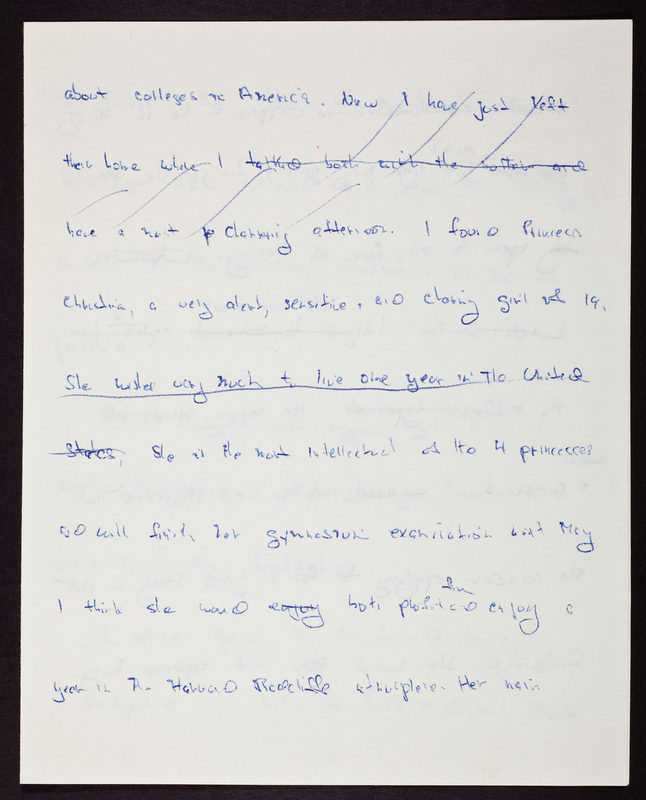 about colleges in America. Now I have just left
their home where I talked both with the mother and
have a most p charming afternoon. I found Princess
Christina, a very alert, sensitive, and charming girl of 19.
She wishes very much to live one year in The United
States, She is the most intellectual of the 4 princesses
and will finish her gymnasium examination next May
I think she would enjoy both profit from and enjoy a
year in the Harvard Radcliffe atmosphere. Her main